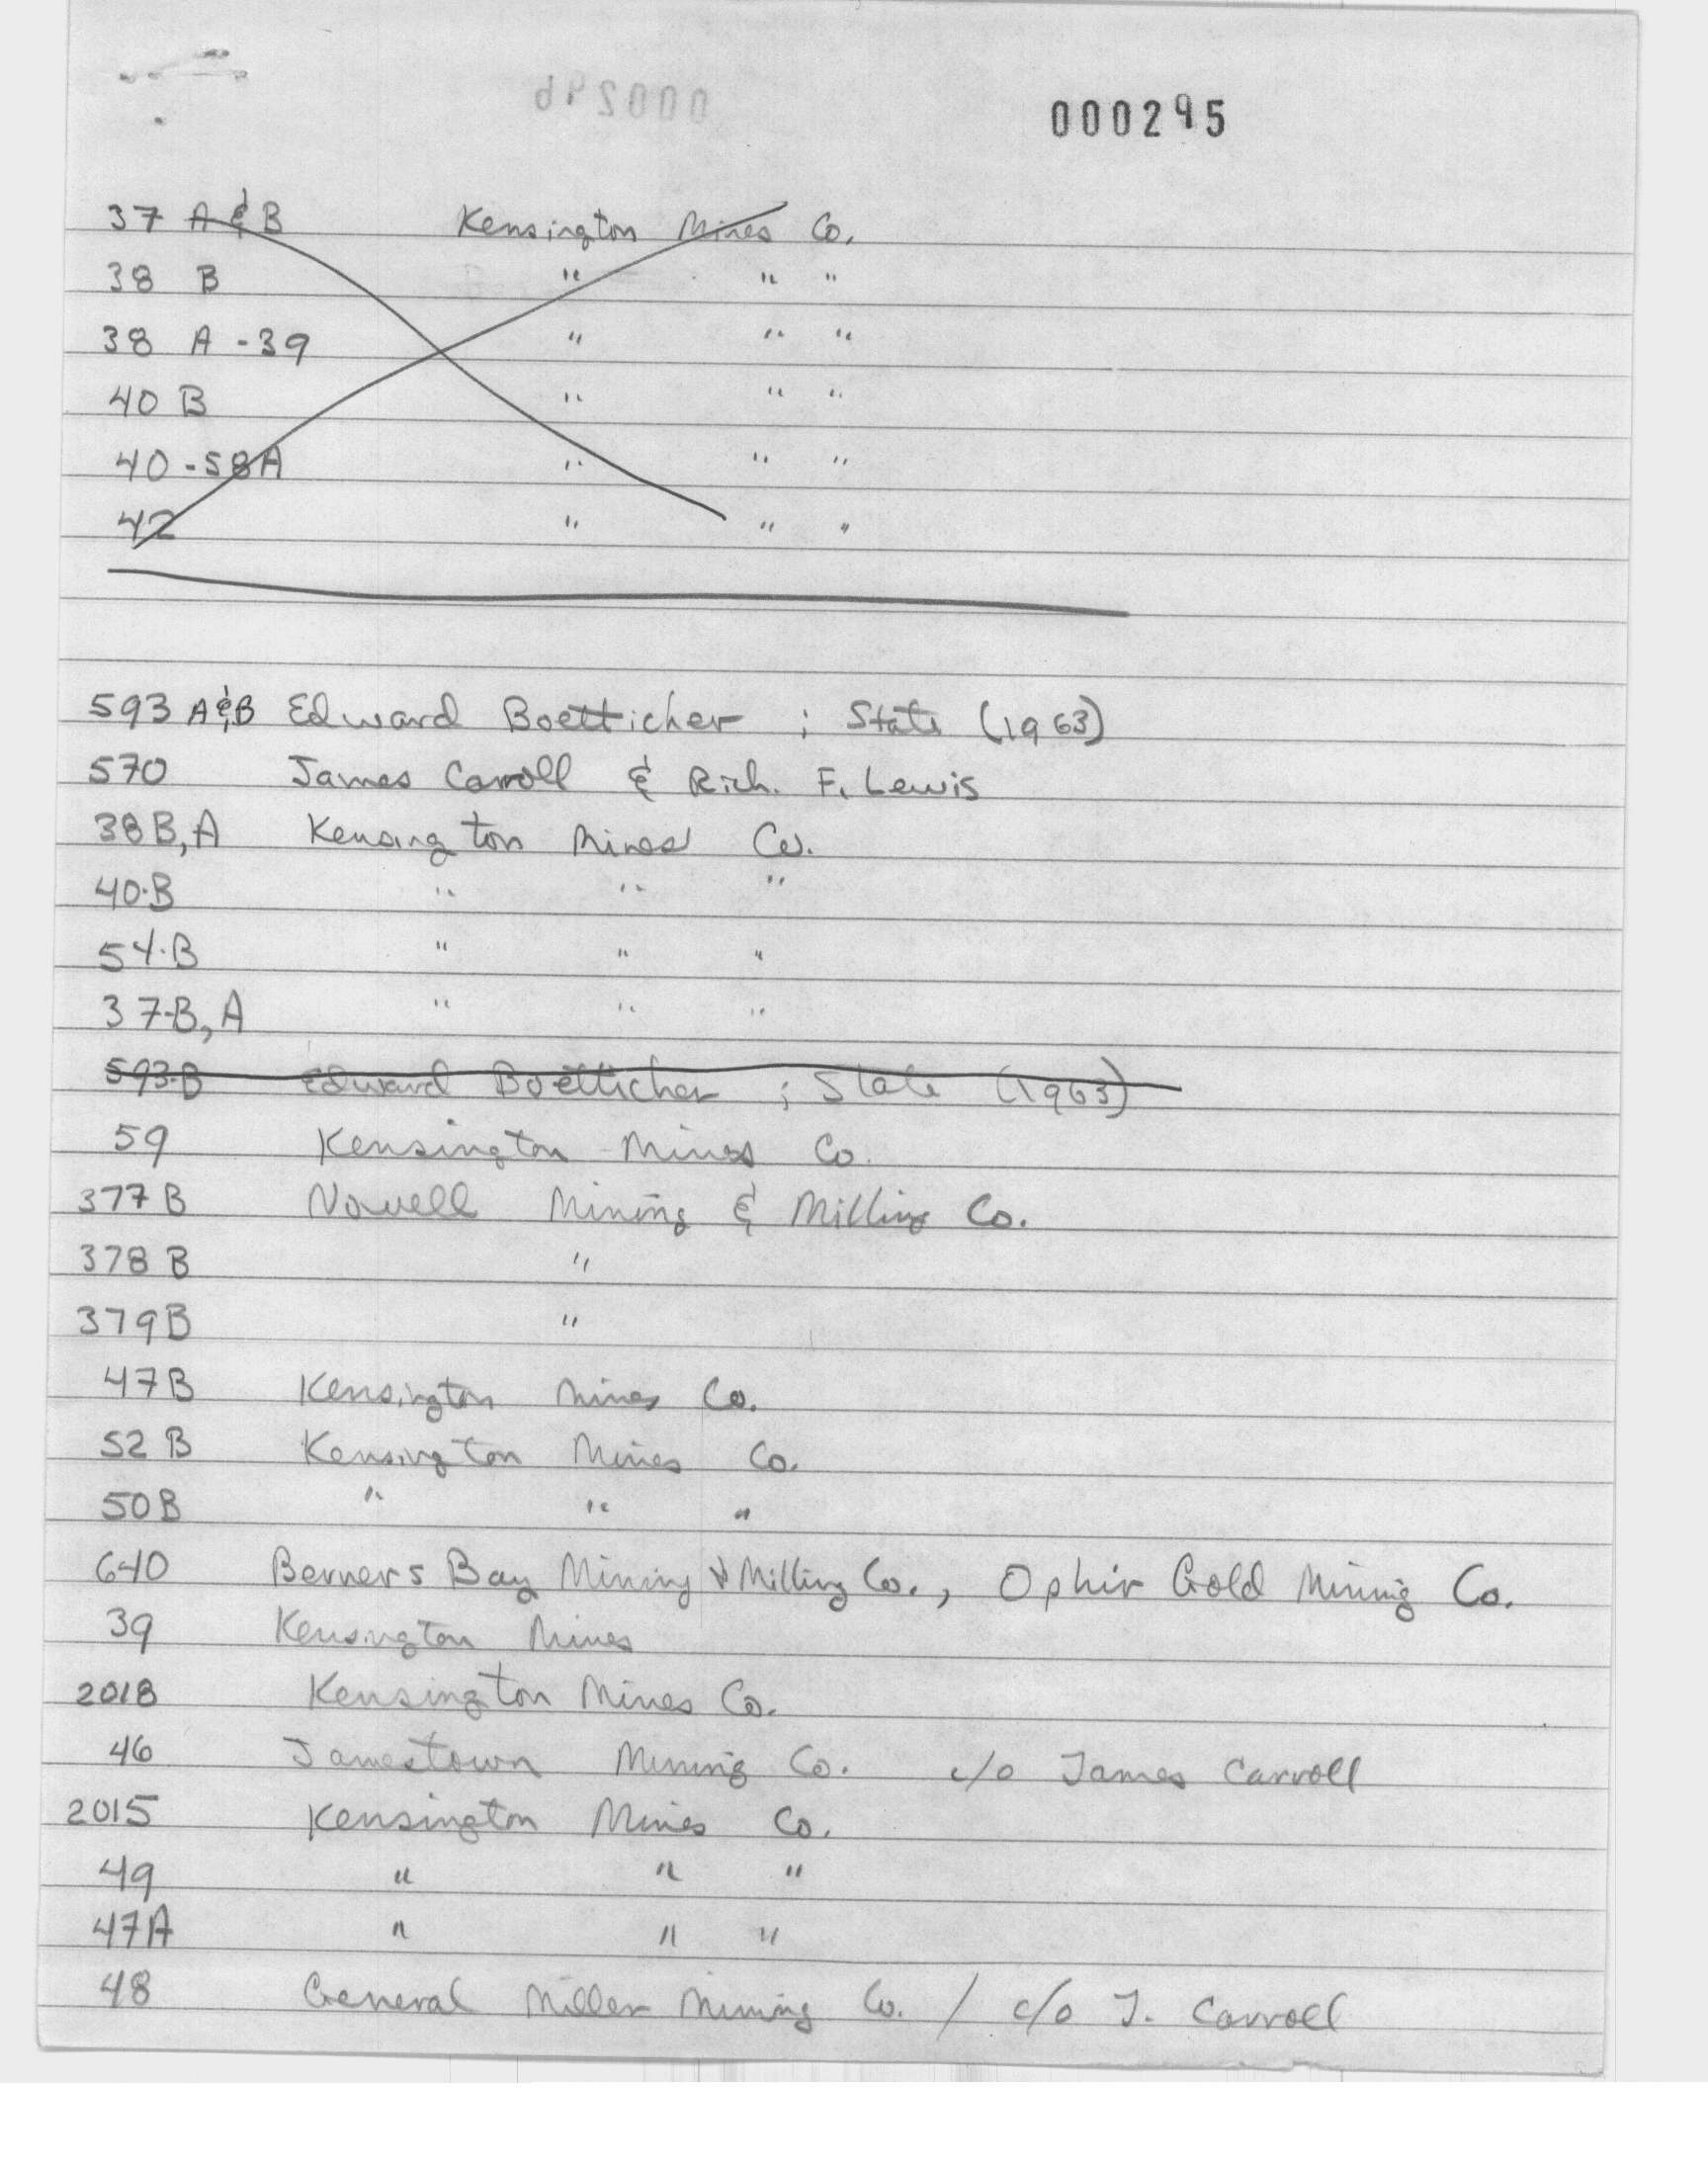 000296
000295
37 A & B Kensington Mines Co.
38 B " " "
38 A - 39 " " "
40 B " " "
40 - 58A " " "
42 " " "
593 A&B Edward Boetticher ; State (1963)
570 James Carroll & Rich. F. Lewis
38B, A Kensington Mines Co.
40-B " " "
54-B " " "
37-B, A " " "
593-B Edward Boetticher ; State (1963)
59 Kensington Mines Co.
377 B Nowell Mining & Milling Co.
378 B "
379B "
47B Kensington Mines Co.
52 B Kensington Mines Co.
50B " " "
640 Berners Bay Mining & Milling Co., Ophir Gold Mining Co.
39 Kensington Mines
2018 Kensington Mines Co.
46 Jamestown Mining Co. c/o James Carroll
2015 Kensington Mines Co.
49 " " "
47A " " "
48 General Miller Mining Co. / c/o J. Carroll